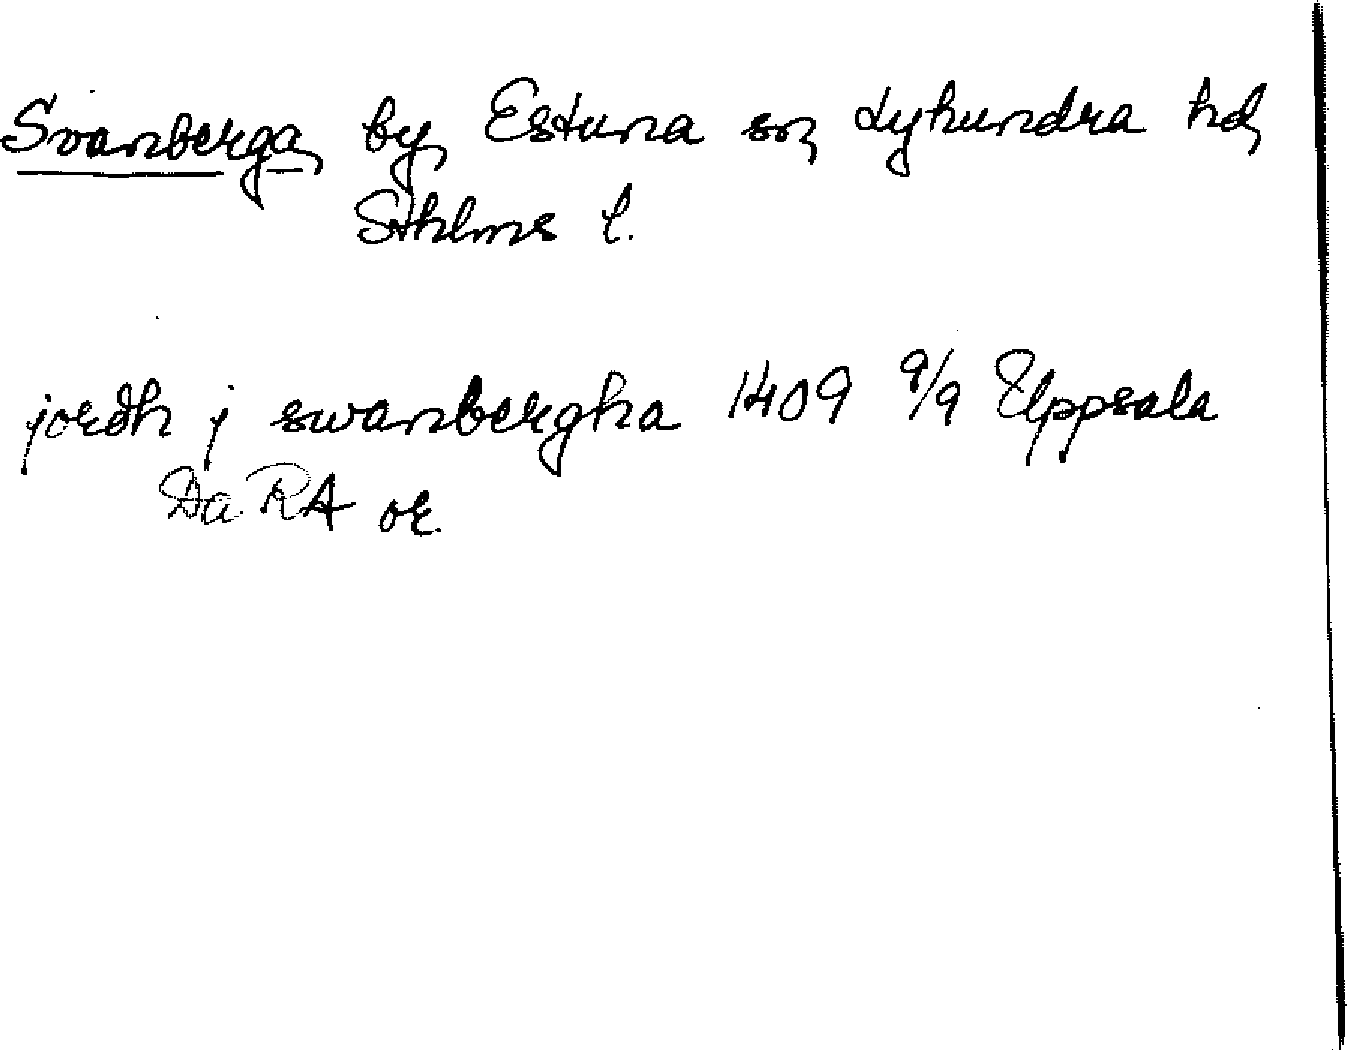 Svanberga, by, Estuna sn, Lyhundra hd,
Sthlms l.
jordh j swanbergha 1409 9/9 Uppsala
Da RA or.